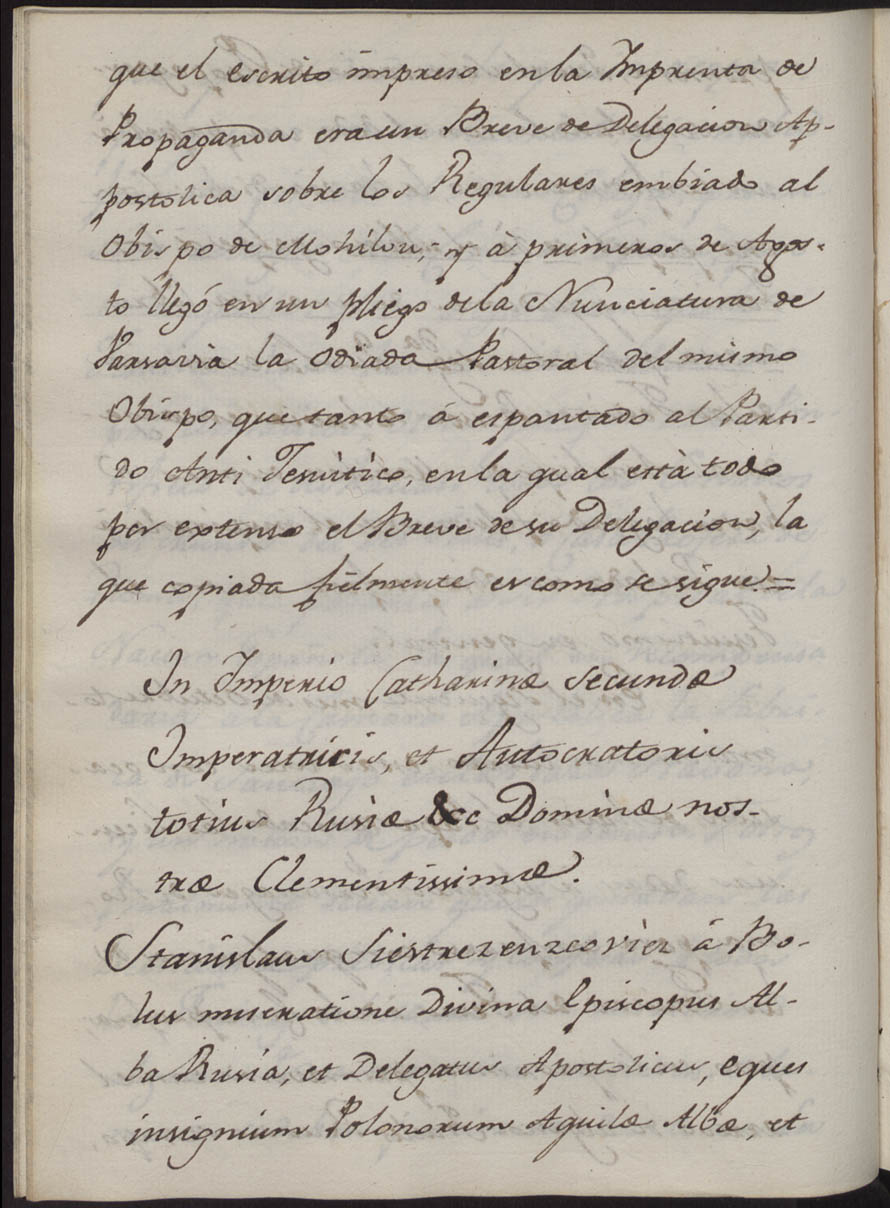 que el escrito impreso en la Imprenta de
Propaganda era un Breve de Delegacion Ap-
postolica sobre los Regulares embiado al
Obispo de Mohilou; y à primeros de Agos-
to llegó en un pliego de la Nunciatura de
Varsavia la Odiada Pastoral del mismo
Obispo, que tanto á espantado al Parti-
do Anti Jesuitico, en la qual està todo
por extenso el Breve de su Delegacion, la
que copiada fielmente es como se sigue. =
In Imperio Catharinæ Secundæ
Imperatricis, et Autocratoris
totius Rusiæ &c Dominæ nos-
træ Clementissimæ.
Stanislaus Siestrzenzcoviez á Bo-
hus miseratione Divina Episcopus Al-
ba Rusia, et Delegatus Apostolicus, eques
insignium Polonorum Aquilæ Albæ, et